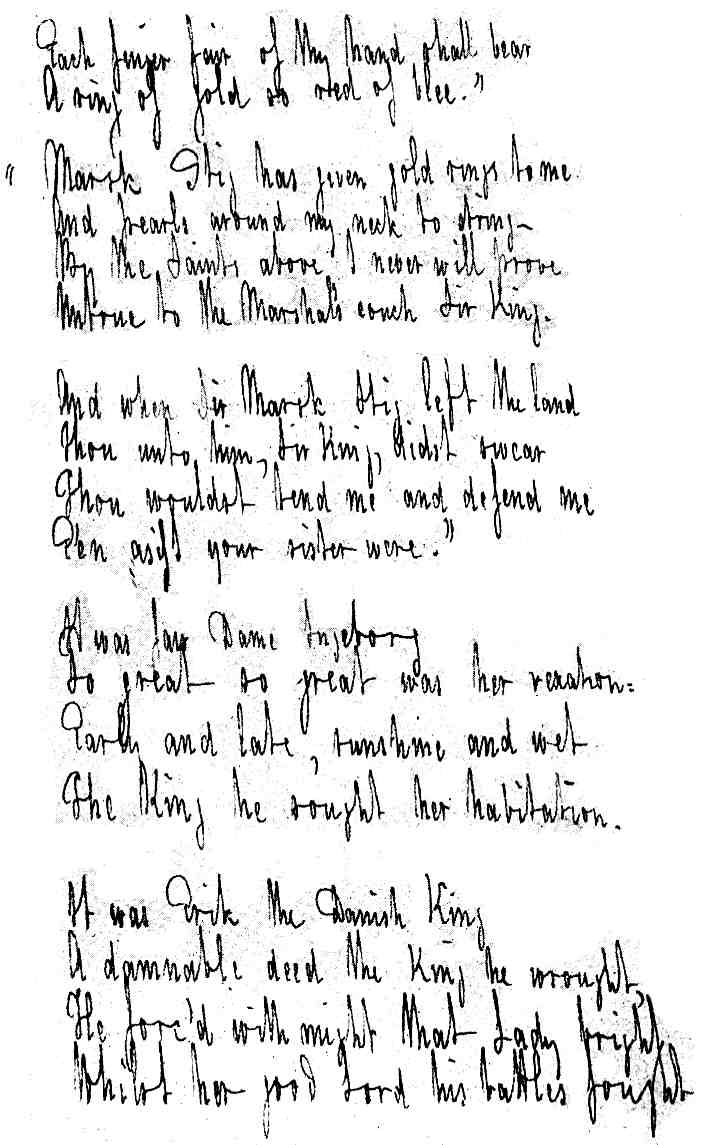 Each finger fair of thy hand shall bear
A ring of gold so red of blee."
"Marsk Stig has given gold rings to me
And pearls around my neck to string—
By the Saints above I never will prove
Untrue to the Marshal's couch Sir King.
And when Sir Marsk Stig left the land
Thou unto him, Sir King, didst swear
Thou wouldst tend me and defend me
E'en as if I your sister were."
It was fair Dame Ingeborg
So great so great was her vexation:
Early and late, sunshine and wet
The King he sought her habitation.
It was Erik the Danish King
A damnable deed the King he wrought,
He forc'd with might that Lady bright,
Whilst her good Lord his battles fought